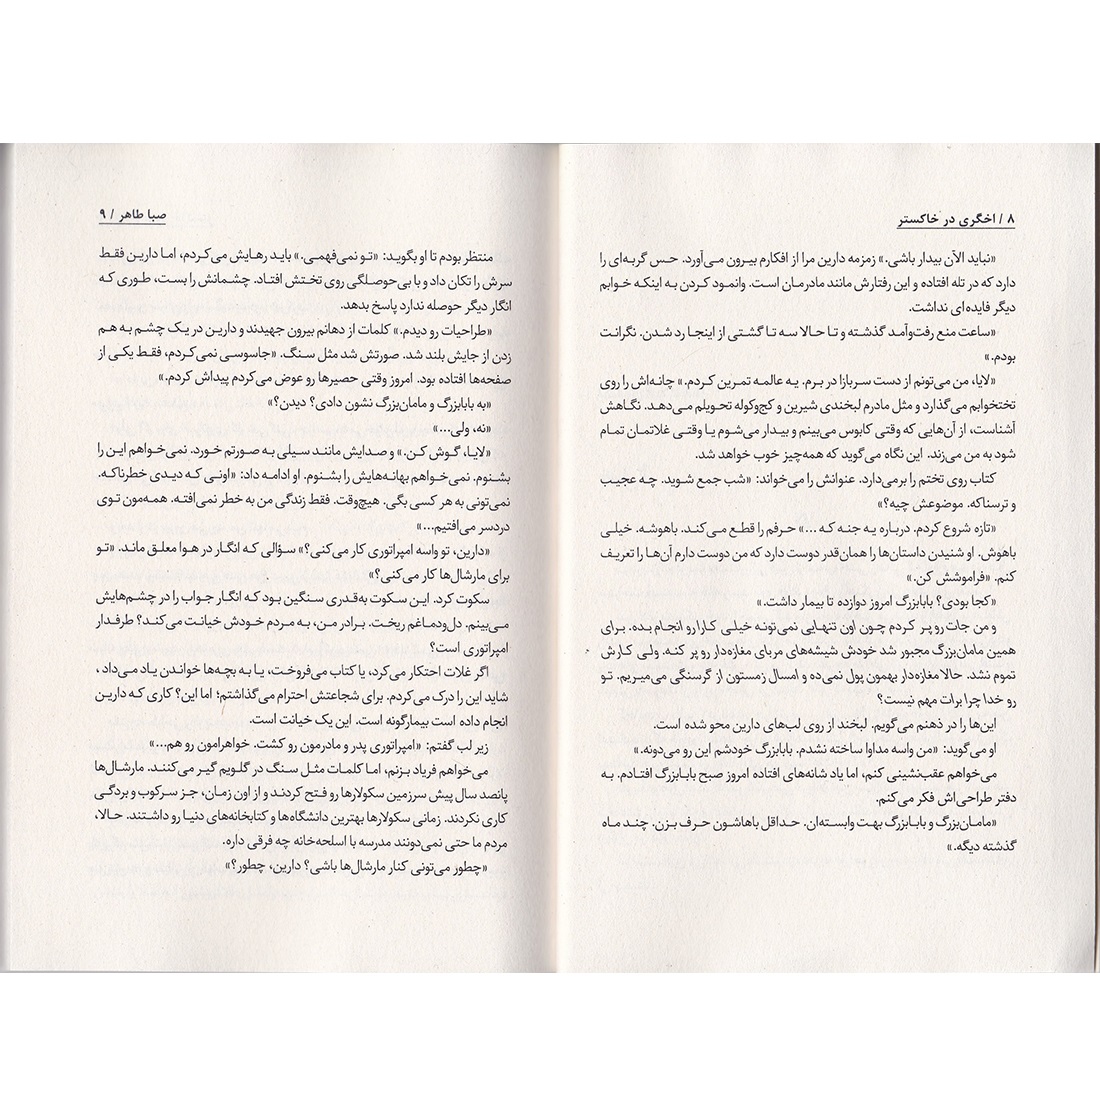 ۸ / اخگری در خاکستر
«نباید الآن بیدار باشی.» زمزمه دارین مرا از افکارم بیرون می‌آورد. حس گربه‌ای را
دارد که در تله افتاده و این رفتارش مانند مادرمان است. وانمود کردن به اینکه خوابم
دیگر فایده‌ای نداشت.
«ساعت منع رفت‌وآمد گذشته و تا حالا سه تا گشتی از اینجا رد شدن. نگرانت
بودم.»
«لایا، من می‌تونم از دست سربازا در برم. یه عالمه تمرین کردم.» چانه‌اش را روی
تختخوابم می‌گذارد و مثل مادرم لبخندی شیرین و کج‌وکوله تحویلم می‌دهد. نگاهش
آشناست، از آن‌هایی که وقتی کابوس می‌بینم و بیدار می‌شوم یا وقتی غلاتمان تمام
شود به من می‌زند. این نگاه می‌گوید که همه‌چیز خوب خواهد شد.
کتاب روی تختم را برمی‌دارد. عنوانش را می‌خواند: «شب جمع شوید. چه عجیب
و ترسناکه. موضوعش چیه؟»
«تازه شروع کردم. درباره یه جنه که ...» حرفم را قطع می‌کند. باهوشه. خیلی
باهوش. او شنیدن داستان‌ها را همان‌قدر دوست دارد که من دوست دارم آن‌ها را تعریف
کنم. «فراموشش کن.»
«کجا بودی؟ بابابزرگ امروز دوازده تا بیمار داشت.»
و من جات رو پر کردم چون اون تنهایی نمی‌تونه خیلی کارا رو انجام بده. برای
همین مامان‌بزرگ مجبور شد خودش شیشه‌های مربای مغازه‌دار رو پر کنه. ولی کارش
تموم نشد. حالا مغازه‌دار بهمون پول نمی‌ده و امسال زمستون از گرسنگی می‌میریم. تو
رو خدا چرا برات مهم نیست؟
این‌ها را در ذهنم می‌گویم. لبخند از روی لب‌های دارین محو شده است.
او می‌گوید: «من واسه مداوا ساخته نشدم. بابابزرگ خودشم این رو می‌دونه.»
می‌خواهم عقب‌نشینی کنم، اما یاد شانه‌های افتاده امروز صبح بابابزرگ افتادم. به
دفتر طراحی‌اش فکر می‌کنم.
«مامان‌بزرگ و بابابزرگ بهت وابسته‌ان. حداقل باهاشون حرف بزن. چند ماه
گذشته دیگه.»
صبا طاهر / ۹
منتظر بودم تا او بگوید: «تو نمی‌فهمی.» باید رهایش می‌کردم، اما دارین فقط
سرش را تکان داد و با بی‌حوصلگی روی تختش افتاد. چشمانش را بست، طوری که
انگار دیگر حوصله ندارد پاسخ بدهد.
«طراحیات رو دیدم.» کلمات از دهانم بیرون جهیدند و دارین در یک چشم به هم
زدن از جایش بلند شد. صورتش شد مثل سنگ. «جاسوسی نمی‌کردم، فقط یکی از
صفحه‌ها افتاده بود. امروز وقتی حصیرها رو عوض می‌کردم پیداش کردم.»
«به بابابزرگ و مامان‌بزرگ نشون دادی؟ دیدن؟»
«نه، ولی...»
«لایا، گوش کن.» و صدایش مانند سیلی به صورتم خورد. نمی‌خواهم این را
بشنوم. نمی‌خواهم بهانه‌هایش را بشنوم. او ادامه داد: «اونی که دیدی خطرناکه.
نمی‌تونی به هر کسی بگی. هیچ‌وقت. فقط زندگی من به خطر نمی‌افته. همه‌مون توی
دردسر می‌افتیم...»
«دارین، تو واسه امپراتوری کار می‌کنی؟» سؤالی که انگار در هوا معلق ماند. «تو
برای مارشال‌ها کار می‌کنی؟»
سکوت کرد. این سکوت به‌قدری سنگین بود که انگار جواب را در چشم‌هایش
می‌بینم. دل‌ودماغم ریخت. برادر من، به مردم خودش خیانت می‌کند؟ طرفدار
امپراتوری است؟
اگر غلات احتکار می‌کرد، یا کتاب می‌فروخت، یا به بچه‌ها خواندن یاد می‌داد،
شاید این را درک می‌کردم. برای شجاعتش احترام می‌گذاشتم؛ اما این؟ کاری که دارین
انجام داده است بیمارگونه است. این یک خیانت است.
زیر لب گفتم: «امپراتوری پدر و مادرمون رو کشت. خواهرامون رو هم...»
می‌خواهم فریاد بزنم، اما کلمات مثل سنگ در گلویم گیر می‌کنند. مارشال‌ها
پانصد سال پیش سرزمین سکولارها رو فتح کردند و از اون زمان، جز سرکوب و بردگی
کاری نکردند. زمانی سکولارها بهترین دانشگاه‌ها و کتابخانه‌های دنیا رو داشتند. حالا،
مردم ما حتی نمی‌دونند مدرسه با اسلحه‌خانه چه فرقی داره.
«چطور می‌تونی کنار مارشال‌ها باشی؟ دارین، چطور؟»